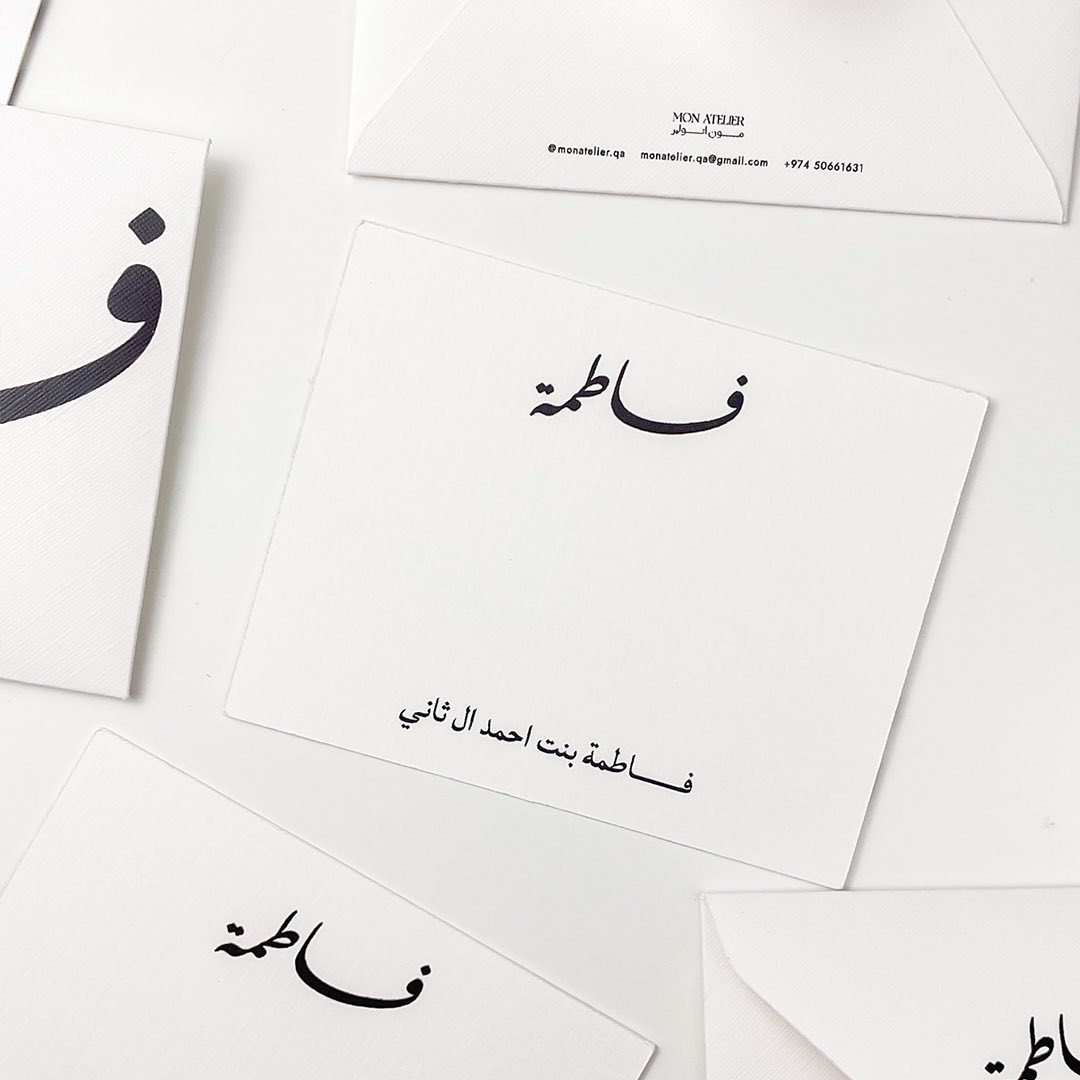 MON ATELIER
مون اتولير
@monatelier.qa monatelier.qa@gmail.com +974 50661631
ف
فاطمة
فاطمة بنت احمد ال ثاني
فاطمة